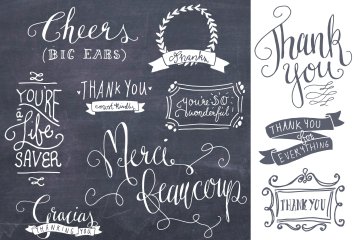 Cheers
(BIG EARS)
thanks
YOU'RE
a
Life
SAVER
THANK YOU
most kindly
you're SO
wonderful
Merci
beaucoup
Gracias
THANKING YOU
Thank
you
THANK YOU
for
EVERYTHING
THANK YOU